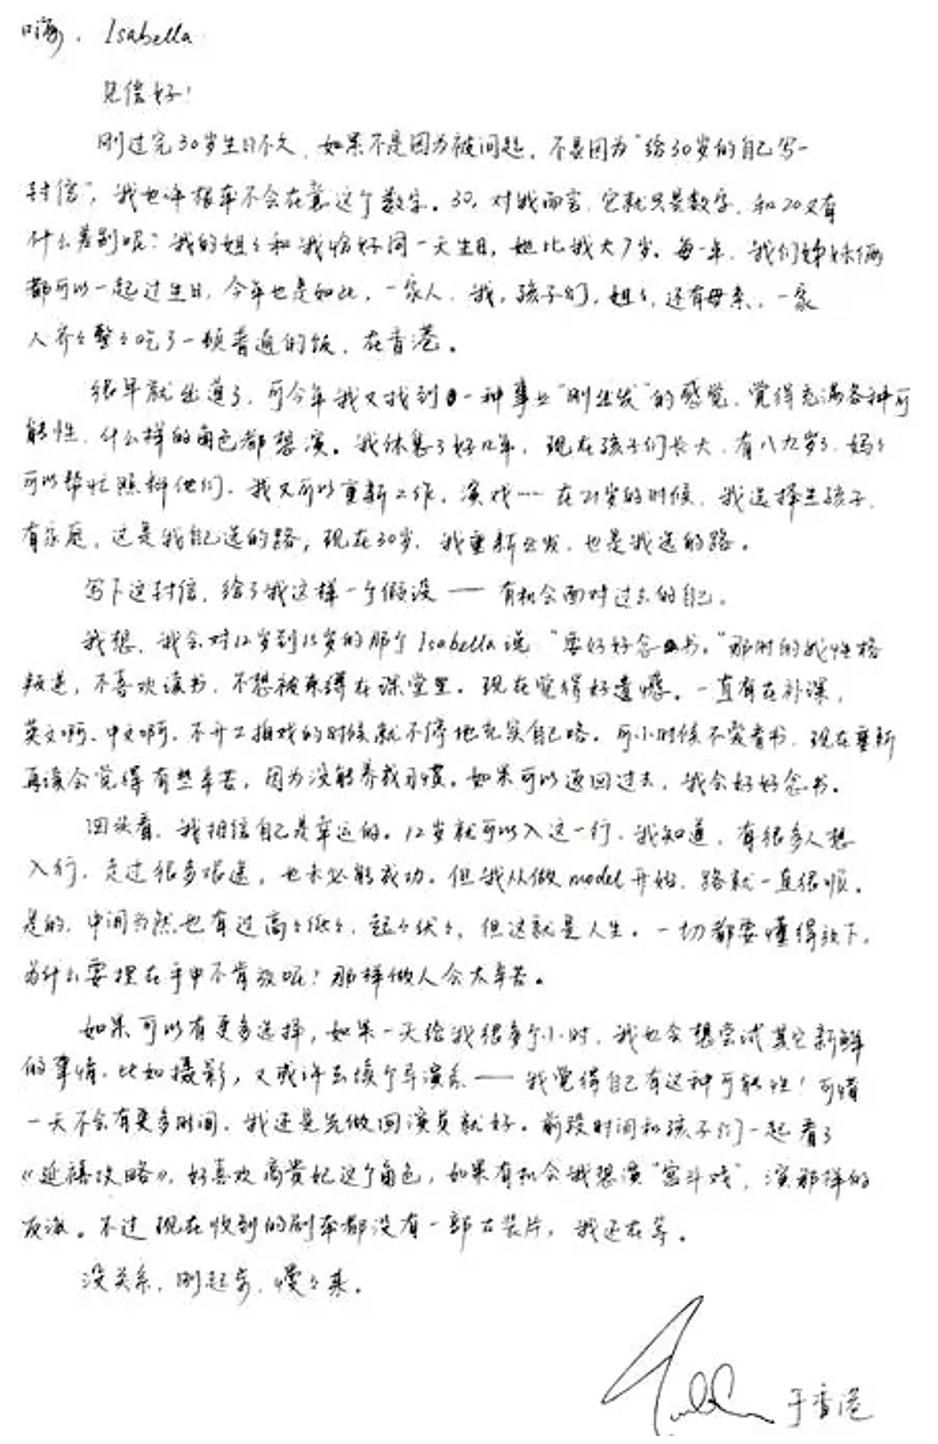 嗨，Isabella
见信好！
刚过完30岁生日不久，如果不是因为被问起，不是因为“给30岁的自己写一
封信”，我也许根本不会在意这个数字。30，对我而言，它就只是数字，和20又有
什么差别呢？我的姐姐和我恰好同一天生日，她比我大7岁。每一年，我们姊妹俩
都可以一起过生日，今年也是如此，一家人，我，孩子们，姐姐，还有母亲，一家
人齐齐整整吃了一顿普通的饭，在香港。
很早就出道了，可今年我又找到一种事业“刚出发”的感觉，觉得充满各种可
能性，什么样的角色都想演。我休息了好几年，现在孩子们长大，有八九岁了，妈妈
可以帮忙照料他们，我又可以重新工作，演戏……在21岁的时候，我选择生孩子，
有家庭，这是我自己选的路，现在30岁，我重新出发，也是我选的路。
写下这封信，给了我这样一个假设——有机会面对过去的自己。
我想，我会对12岁到15岁的那个Isabella说“要好好念书。”那时的我性格
叛逆，不喜欢读书，不想被束缚在课堂里。现在觉得好遗憾。一直有在补课，
英文啊，中文啊，不开工拍戏的时候就不停地充实自己咯。可小时候不爱看书，现在重新
再读会觉得有些辛苦，因为没能养成习惯。如果可以返回过去，我会好好念书。
回头看，我相信自己是幸运的。12岁就可以入这一行，我知道，有很多人想
入行，走过很多艰途，也未必能成功。但我从做model开始，路就一直很顺。
是的，中间当然也有过高高低低，起起伏伏，但这就是人生。一切都要懂得放下，
为什么要捏在手中不肯放呢？那样做人会太辛苦。
如果可以有更多选择，如果一天给我很多个小时，我也会想尝试其它新鲜
的事情，比如摄影，又或许去读个导演系——我觉得自己有这种可能性！可惜
一天不会有更多时间，我还是先做回演员就好。前段时间和孩子们一起看了
《延禧攻略》，好喜欢高贵妃这个角色，如果有机会我想演“宫斗戏”，演那样的
反派。不过现在收到的剧本都没有一部古装片，我还在等。
没关系，刚起步，慢慢来。
于香港